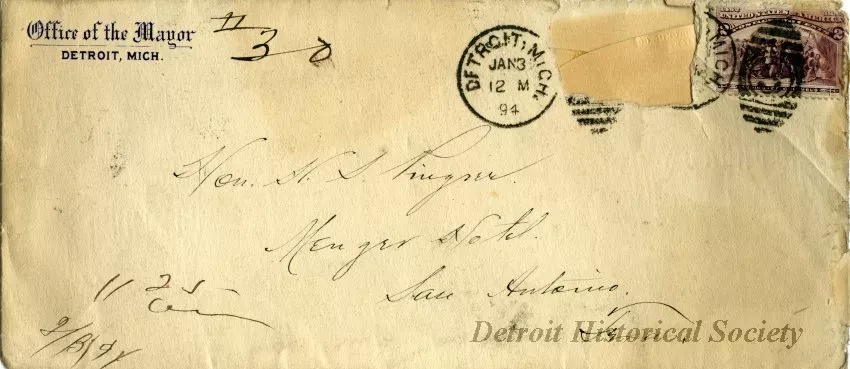 Office of the Mayor
DETROIT, MICH.
30
DETROIT, MICH.
JAN 3
12 M
94
MICH
UNITED STATES OF AMERICA
Hon. H. S. Pingree.
Menger Hotel.
San Antonio.
Tex.
11 25
Detroit Historical Society